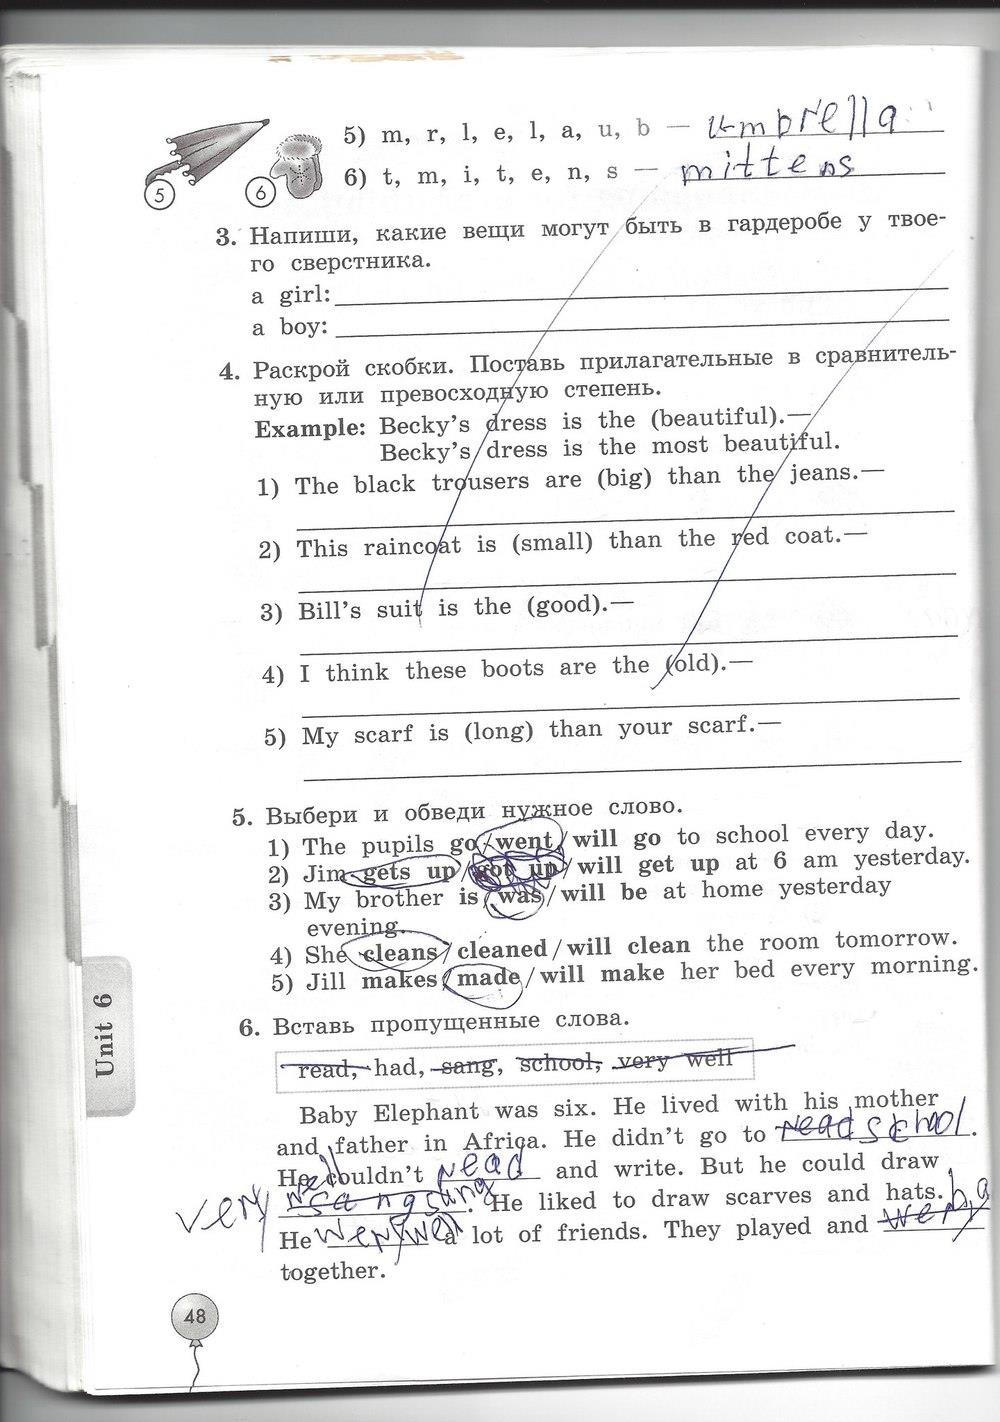 5) m, r, l, e, l, a, u, b — umbrella
6) t, m, i, t, e, n, s — mittens
5
6
3. Напиши, какие вещи могут быть в гардеробе у твое-
го сверстника.
a girl:
a boy:
4. Раскрой скобки. Поставь прилагательные в сравнитель-
ную или превосходную степень.
Example: Becky's dress is the (beautiful).—
Becky's dress is the most beautiful.
1) The black trousers are (big) than the jeans.—
2) This raincoat is (small) than the red coat.—
3) Bill's suit is the (good).—
4) I think these boots are the (old).—
5) My scarf is (long) than your scarf.—
5. Выбери и обведи нужное слово.
1) The pupils go/went/will go to school every day.
2) Jim gets up/got up/will get up at 6 am yesterday.
3) My brother is/was/will be at home yesterday
evening.
4) She cleans/cleaned/will clean the room tomorrow.
5) Jill makes/made/will make her bed every morning.
Unit 6
6. Вставь пропущенные слова.
read, had, sang, school, very well
Baby Elephant was six. He lived with his mother
and father in Africa. He didn't go to read school.
He couldn't read and write. But he could draw
very sang sung. He liked to draw scarves and hats.
He a lot of friends. They played and
together.
48